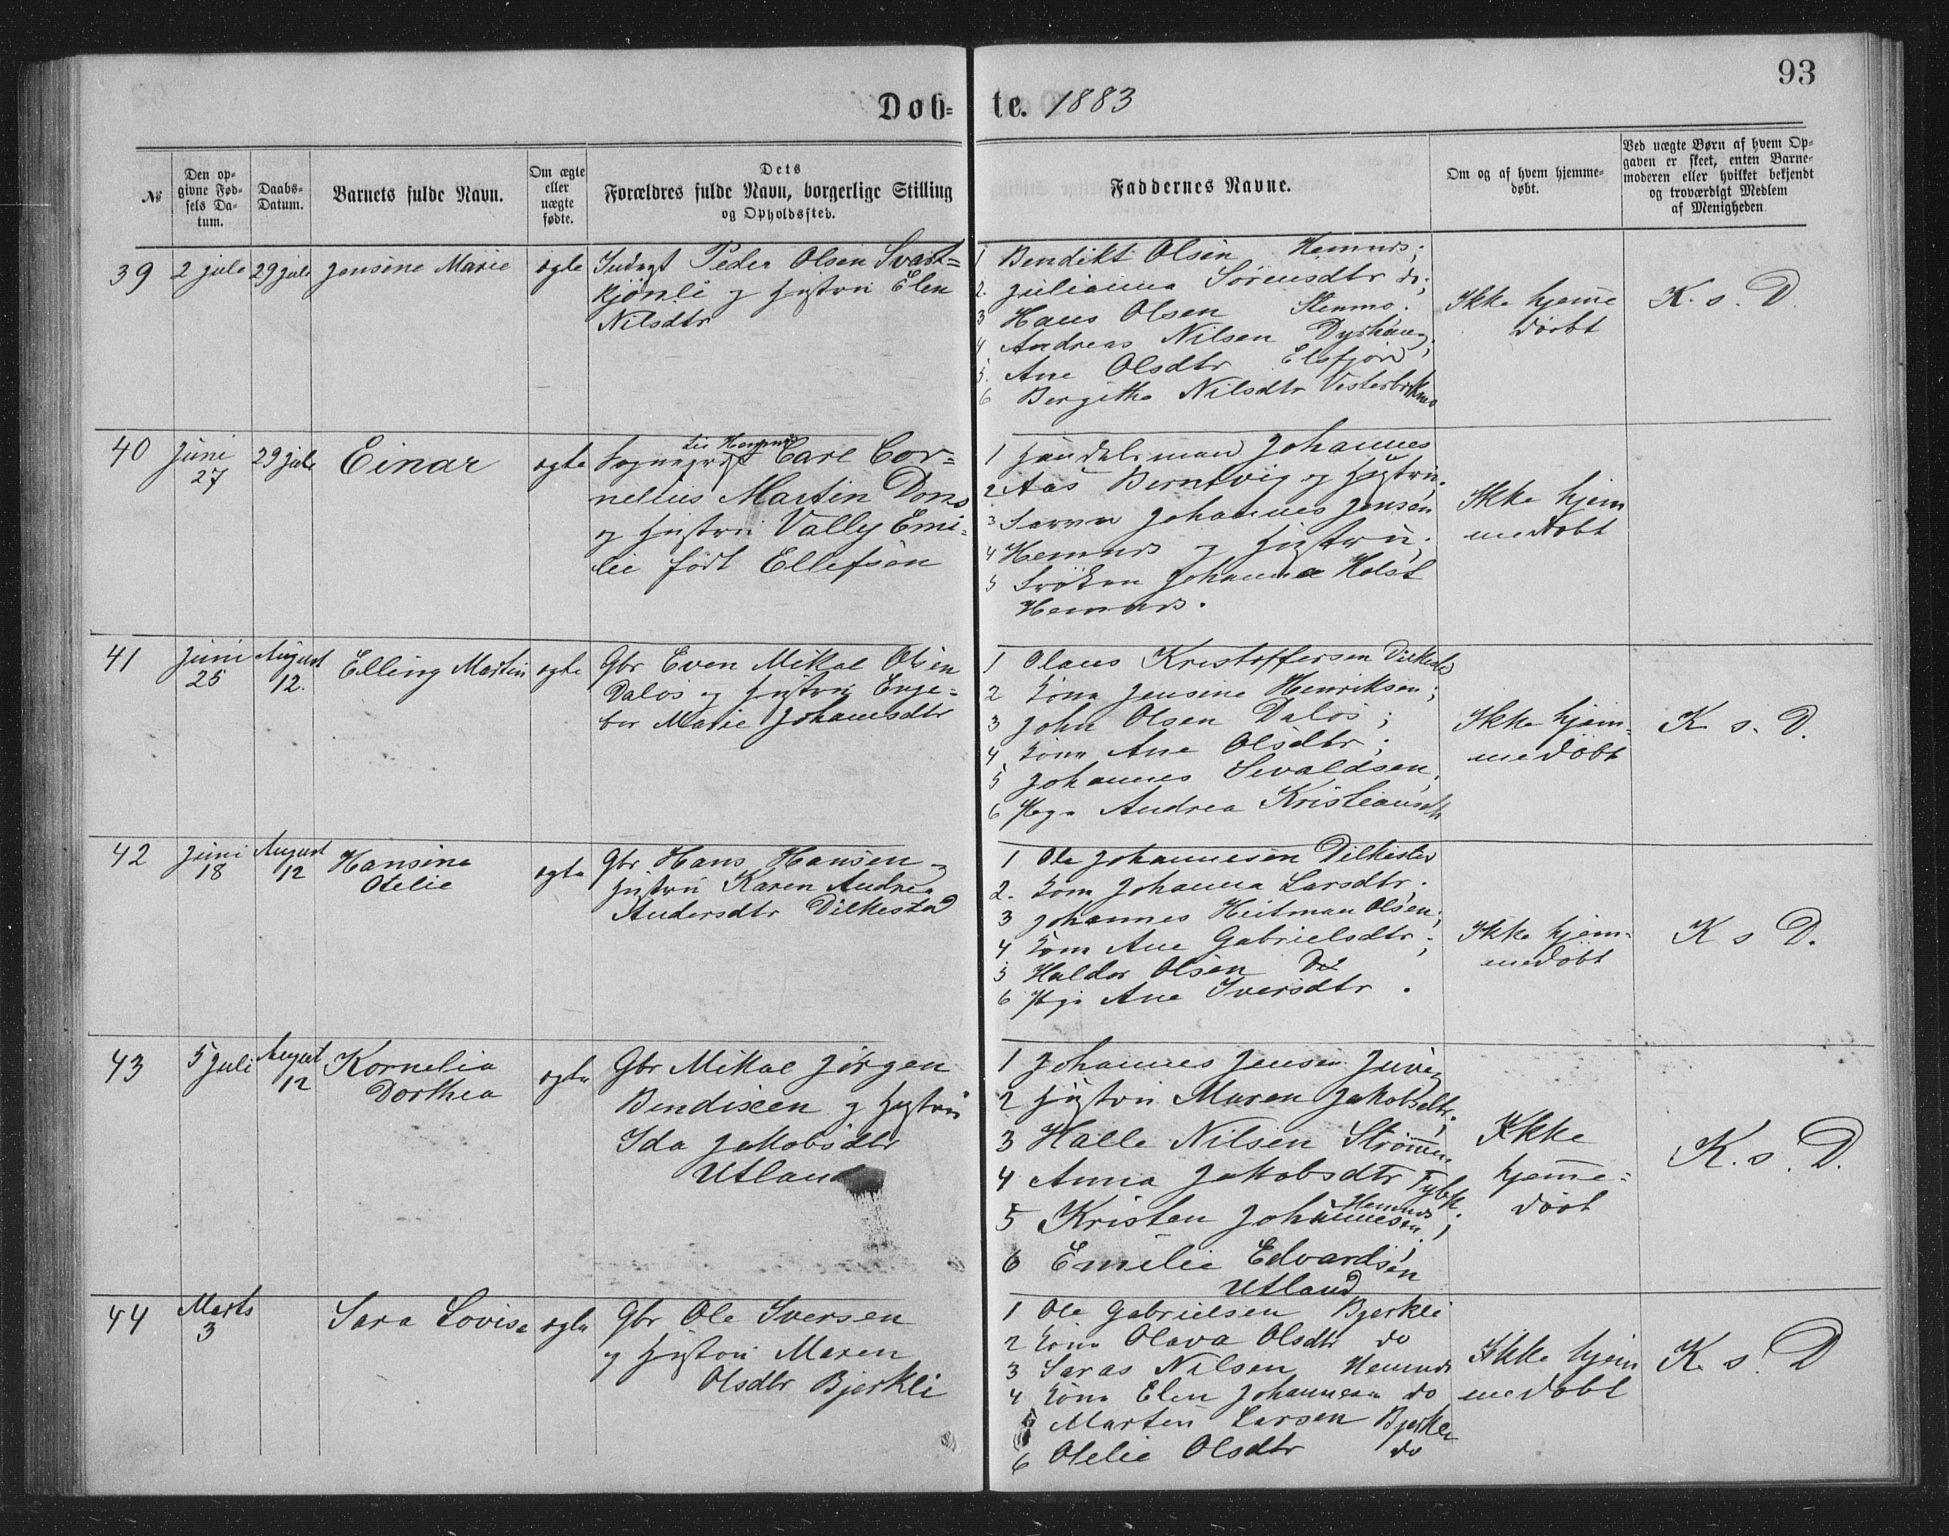 93
Døb= te. 1883
№
Den opgivne Fødsels Datum.
Daabs-Datum.
Barnets fulde Navn.
Om ægte eller uægte fødte.
Dets Forældres fulde Navn, borgerlige Stilling og Opholdssted.
Faddernes Navne.
Om og af hvem hjemmedøbt.
Ved uægte Børn af hvem Opgaven er skeet, enten Barnemoderen eller hvilket bekjendt og troværdigt Medlem af Menigheden
39 2 jule 29 jule Jensine Marie ægte
Peder Olsen Svart=
kjønli og Elen
Nilsdtr
1 Bendikt Olsen Hemnæs;
2. Julianna Sørensdtr do;
3 Hans Olsen
4 Andreas Nilsen Dyrhaug;
5. Ane Olsdtr Elsfjord
6 Bergitha Nilsdtr
Ikke hjemme
døbt
K. s. D.
40 Juni
27
29 jule Einar ægte
til Hemnæs
Sogneprest Carl Cor=
nelius Martin Dons
og Hustru Vally Emi=
lie født Ellefsen
1 Handelsmand Johannes
2 Aas Berntvig og Hustru;
3 Johannes Jensen
4 Hemnæs og Hustru;
5 Frøken Johanna Holst
Hemnæs.
Ikke hjem
medøbt
41 Juni
25
August
12.
Elling Martin ægte
Gbr Even Mikal Olsen
Dalos og Hustru Enge=
bor Marie Johansdtr
1 Olaus Kristoffersen Dilkestd
2 Kona Jensine Henriksen;
3 John Olsen Dalos;
4 Kona Ane Olsdtr;
5 Johannes Sivaldsen,
6 Pige Andrea Kristiansdtr
Ikke hjem=
medøbt
K s. D.
42 Juni
18
August
12
Hansine
Otelie
ægte
Gbr Hans Hansen og
Hustru Karen Andrea
Andersdtr Dilkestad
1 Ole Johannesen Dilkestad
2. Kona Johanna Larsdtr;
3 Johannes Heitman Olsen;
4 Kona Ane Gabrielsdtr;
5 Haldor Olsen
6 Pige Ane Iversdtr.
Ikke hjem=
medøbt
K s D.
43 5 Juli August
12
Kornelia
Dorthea
ægte
Gbr Mikal Jørgen
Bendixen og Hustru
Ida Jakobsdtr
Utland
1 Johannes Jensen Juvig
2 Hustru Maren Jakobsdtr;
3 Halle Nilsen Strømmen
4 Anna Jakobsdtr
5 Kristen Johannesen Hemnæs;
6 Emilie Edvardsen
Utland
Ikke
hjemme=
døbt
K. s. D.
44 Marts
3
Sara Lovise ægte
Gbr Ole Iversen
og Hustru Maren
Olsdtr Bjerkli
1 Ole Gabrielsen Bjerkli
2 Kona Olava Olsdtr do
3 Saras Nilsen Hemnæs
4 Kona Elen Johannesen do
5 Martin Larsen Bjerkli
6 Otelie Olsdtr do
Ikke hjem
medøbt
K. s. D